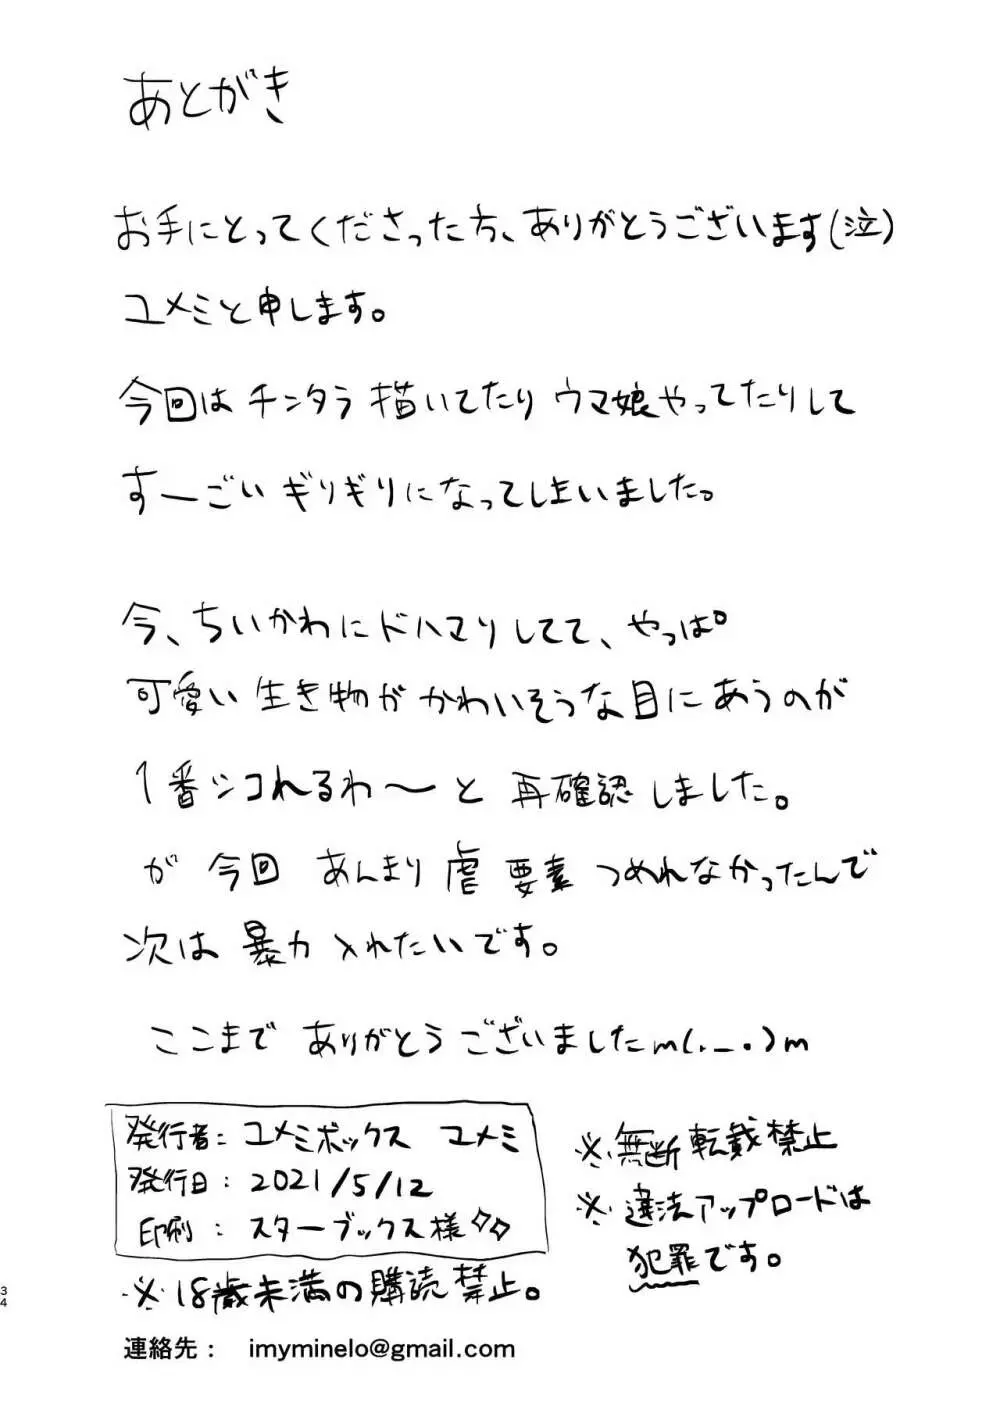 あとがき
お手にとってくださった方、ありがとうございます(泣)
ユメミと申します。
今回は チンタラ 描いてたり ウマ娘やってたりして
すーごい ギリギリになってしまいました。
今、ちいかわにドハマりしてて、やっぱ
可愛い 生き物が かわいそうな目にあうのが
1番シコれるわ〜と 再確認しました。
が 今回 あんまり 虐 要素 つめれなかったんで
次は 暴力 入れたいです。
ここまで ありがとうございましたm(._.)m
発行者: ユメミボックス ユメミ
発行日: 2021/5/12
印刷: スターブックス様◇◇
※18歳未満の購読禁止。
※無断転載禁止
※違法アップロードは
犯罪です。
連絡先: imyminelo@gmail.com
34